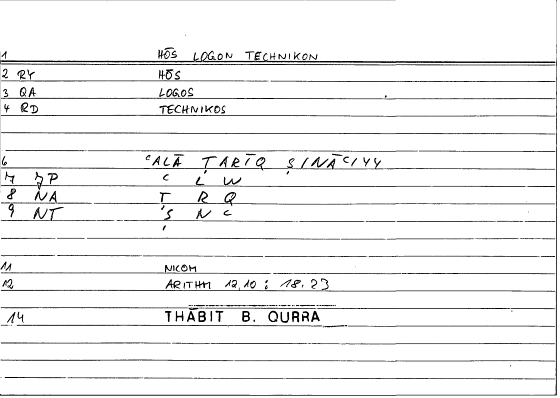 1 HŌS LOGON TECHNIKON
2 RY HŌS
3 QA LOGOS
4 RD TECHNIKOS
6 ᶜALĀ ṬARĪQ ṢINĀᶜIYY
7 JP ᶜ L W
8 NA Ṭ R Q
9 NT Ṣ N ᶜ
11 NICOM
12 ARITHM 12,10 : 18.23
14 THĀBIT B. QURRA